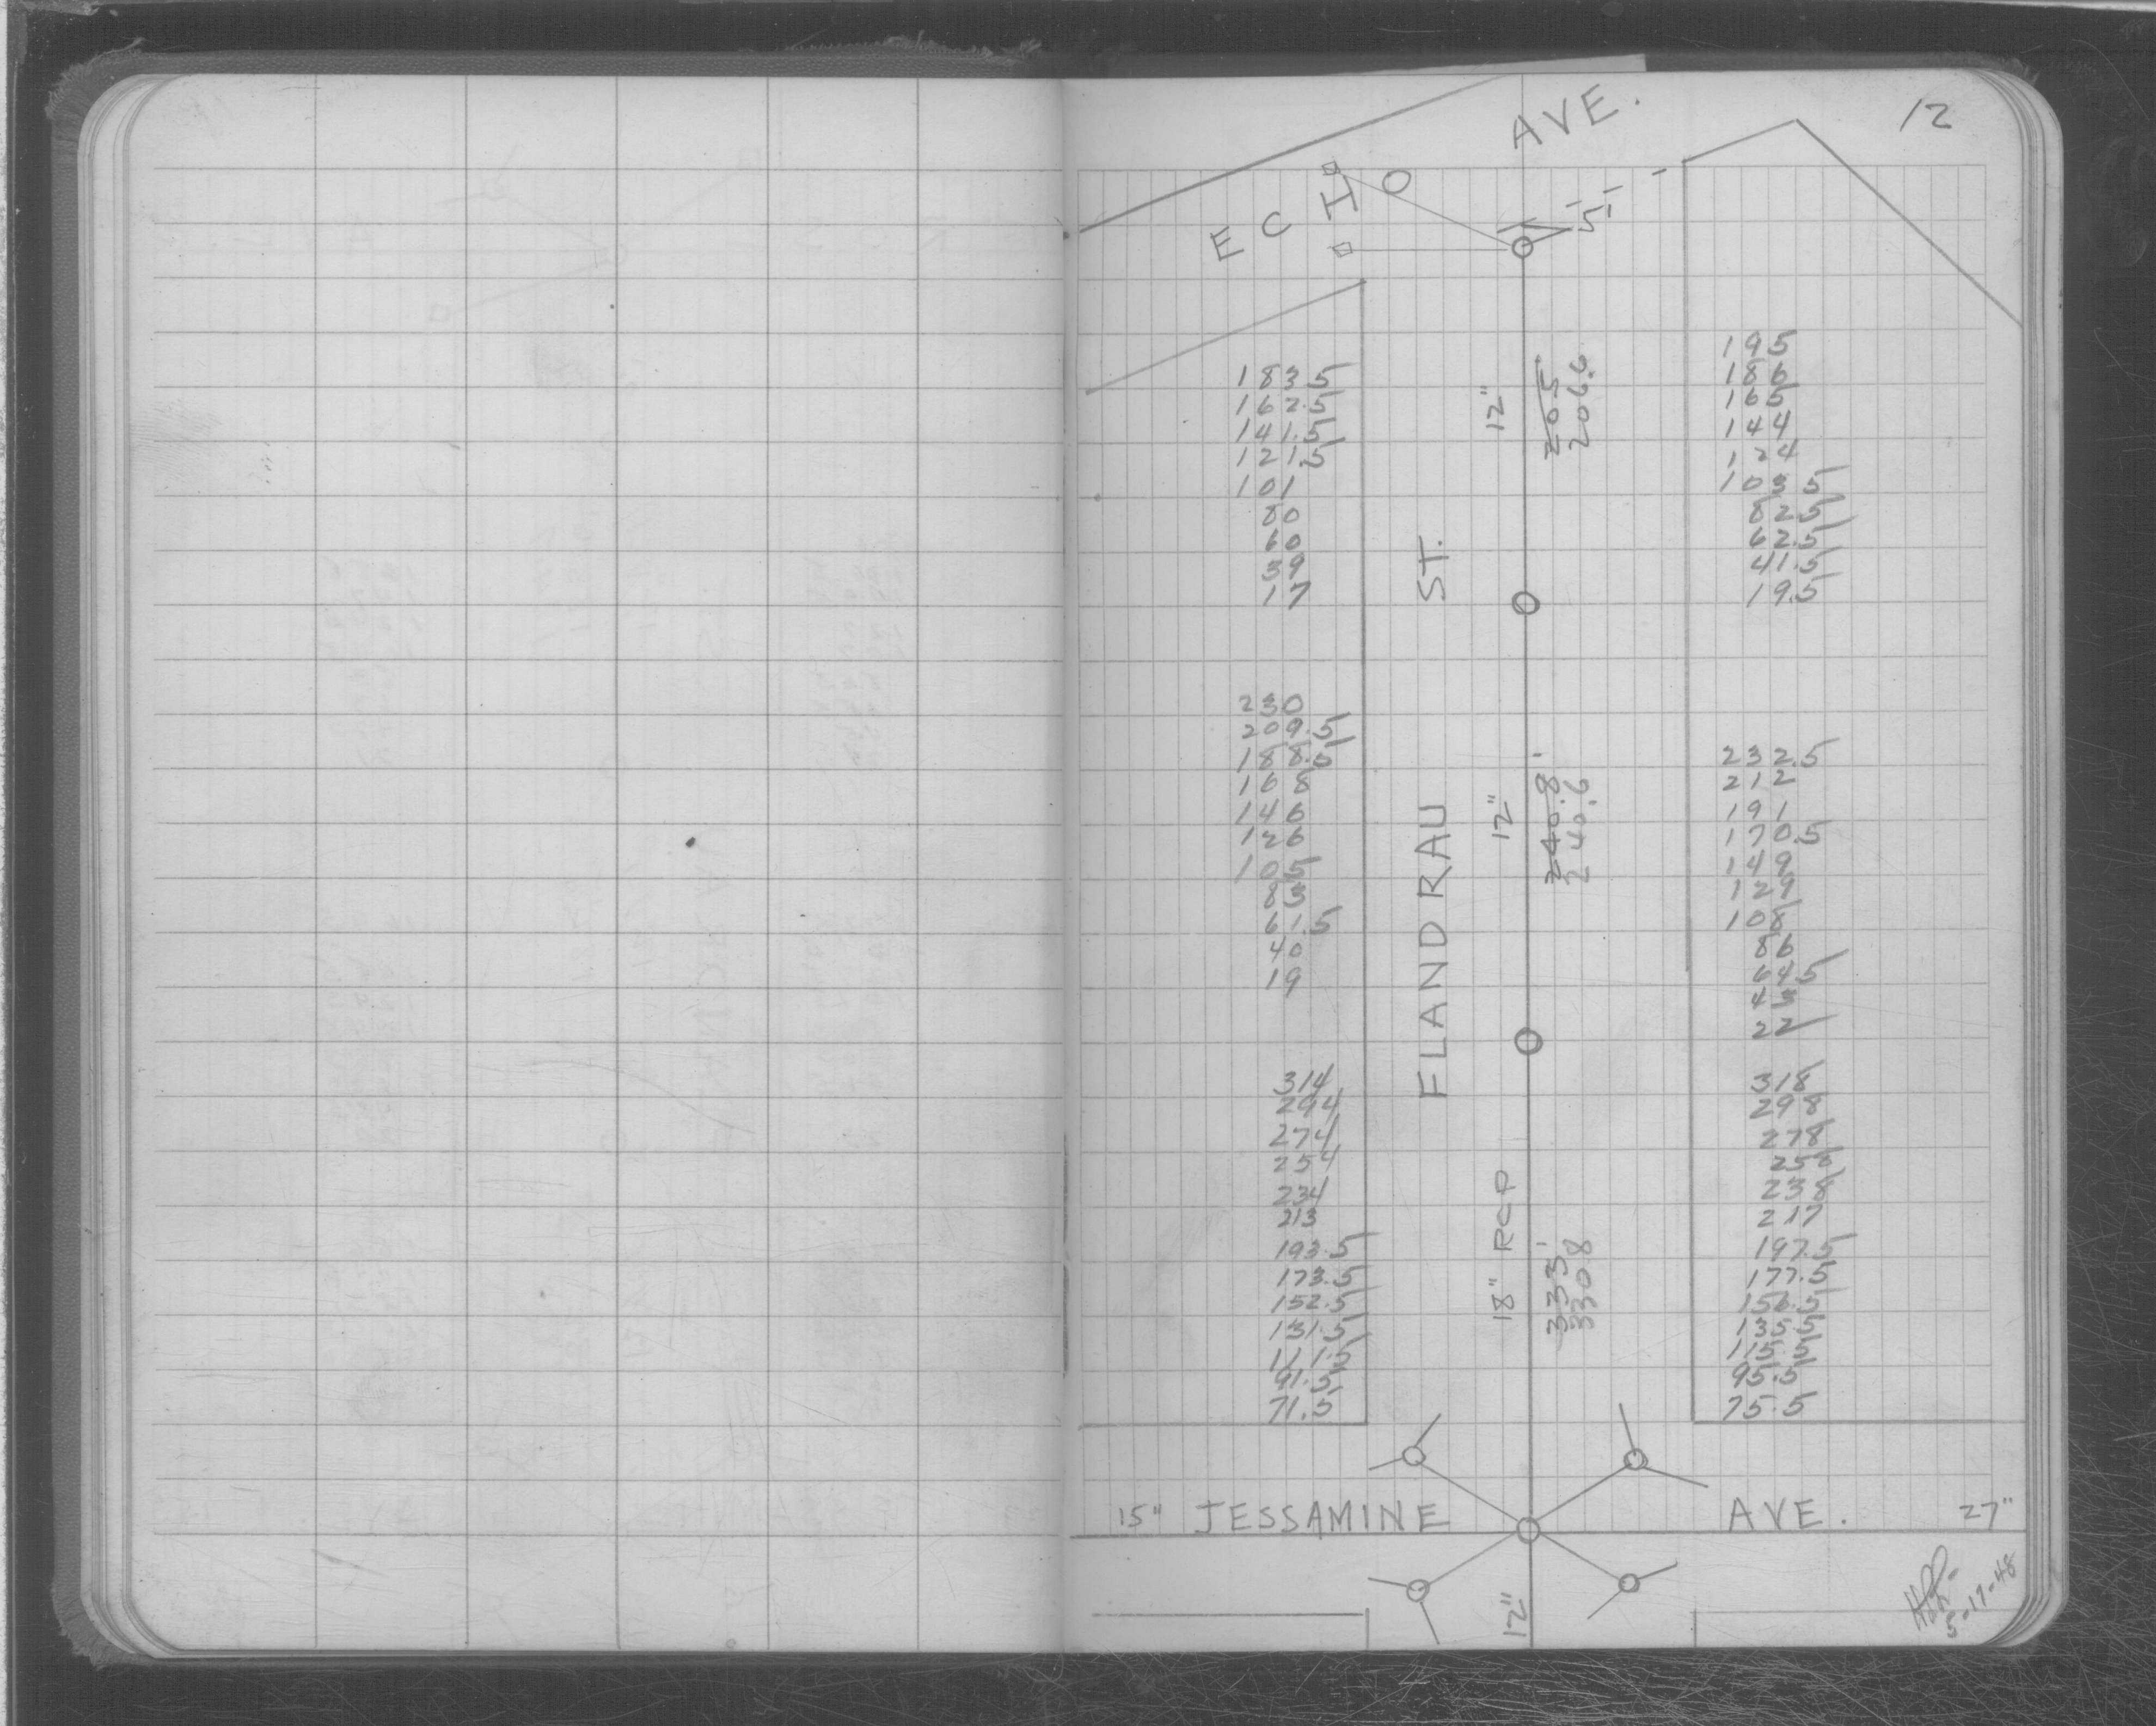 12
ECHO AVE.
5
183.5
162.5
141.5
121.5
101
80
60
39
17
12"
205
206.6
195
186
165
144
124
103.5
82.5
62.5
41.5
19.5
FLANDRAU ST.
230
209.5
188.5
168
146
126
105
83
61.5
40
19
12"
240.8'
240.6
232.5
212
191
170.5
149
129
108
86
64.5
43
22
314
294
274
254
234
213
193.5
173.5
152.5
131.5
111.5
91.5
71.5
18" RCP
333'
330.8
318
298
278
258
238
217
197.5
177.5
156.5
135.5
115.5
95.5
75.5
15" JESSAMINE AVE. 27"
12"
5-17-48